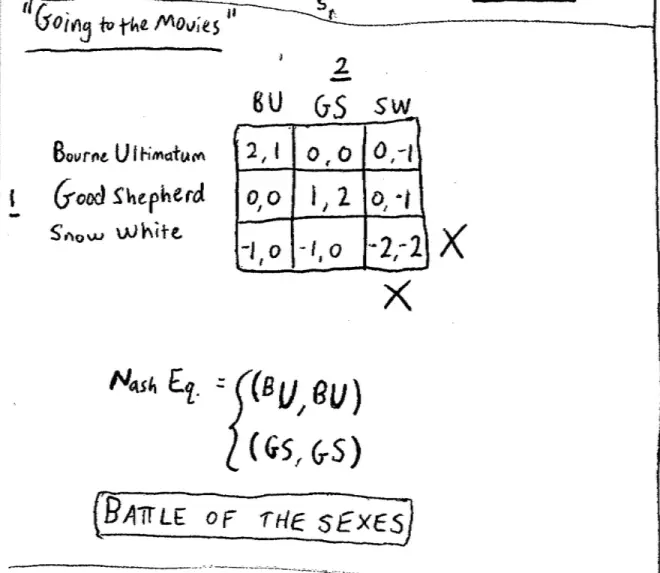 "Going to the Movies"
2
BU GS SW
Bourne Ultimatum 2,1 0,0 0,-1
1 Good Shepherd 0,0 1,2 0,-1
Snow White -1,0 -1,0 -2,-2 X
X
Nash Eq. = { (BU, BU)
(GS, GS)
BATTLE OF THE SEXES